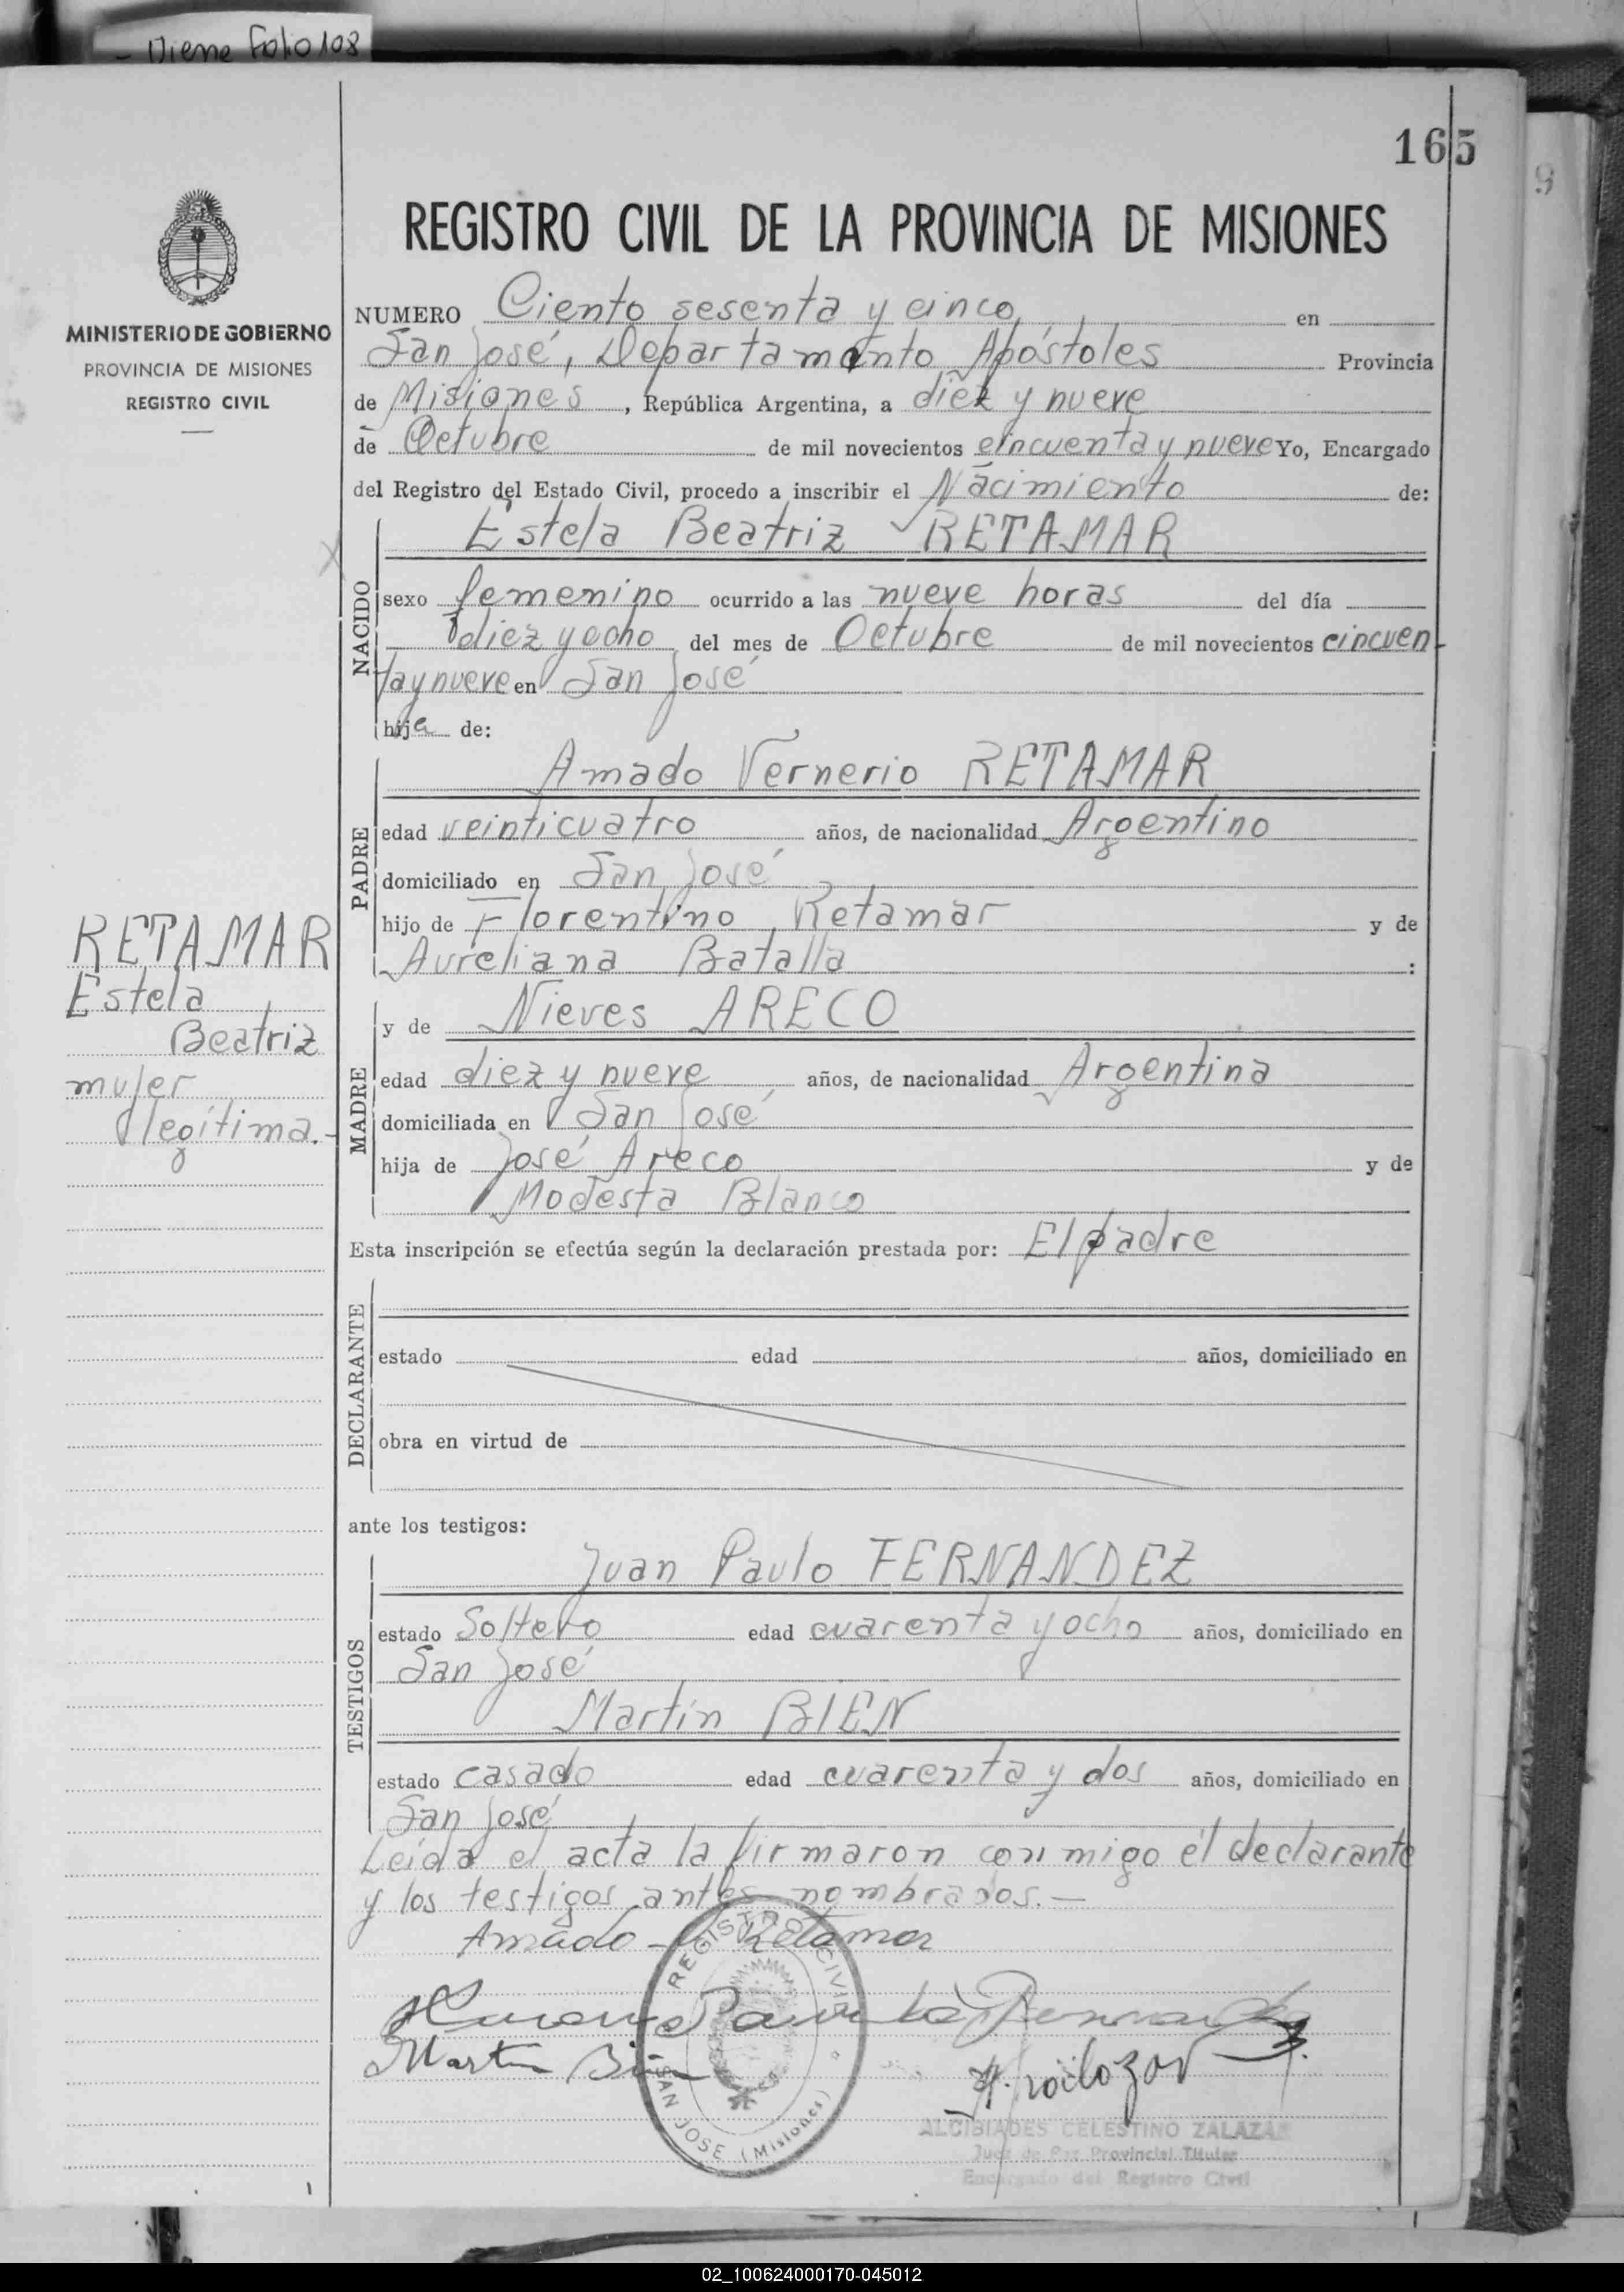 - Viene Folio 108
165
9
MINISTERIO DE GOBIERNO
PROVINCIA DE MISIONES
REGISTRO CIVIL
REGISTRO CIVIL DE LA PROVINCIA DE MISIONES
NUMERO Ciento sesenta y cinco, en
San José, Departamento Apóstoles Provincia
de Misiones, República Argentina, a diez y nueve
de Octubre de mil novecientos cincuenta y nueve Yo, Encargado
del Registro del Estado Civil, procedo a inscribir el Nacimiento de:
NACIDO
Estela Beatriz RETAMAR
sexo femenino ocurrido a las nueve horas del día
diez y ocho del mes de Octubre de mil novecientos cincuen-
ta y nueve en San José
hija de:
PADRE
Amado Vernerio RETAMAR
edad veinticuatro años, de nacionalidad Argentino
domiciliado en San José
hijo de Florentino Retamar y de
Aureliana Batalla :
RETAMAR
Estela
Beatriz
mujer
legítima.-
MADRE
y de Nieves ARECO
edad diez y nueve años, de nacionalidad Argentina
domiciliada en San José
hija de José Areco y de
Modesta Blanco
Esta inscripción se efectúa según la declaración prestada por: El padre
DECLARANTE
estado edad años, domiciliado en
obra en virtud de
ante los testigos:
TESTIGOS
Juan Paulo FERNANDEZ
estado Soltero edad cuarenta y ocho años, domiciliado en
San José
Martín BIEN
estado casado edad cuarenta y dos años, domiciliado en
San José
Leída el acta la firmaron conmigo el declarante
y los testigos antes nombrados.-
Amado Retamar
Martin Bien
REGISTRO CIVIL
SAN JOSE (Misiones)
ALCIBIADES CELESTINO ZALAZAR
Juez de Paz Provincial Titular
Encargado del Registro Civil
02_100624000170-045012